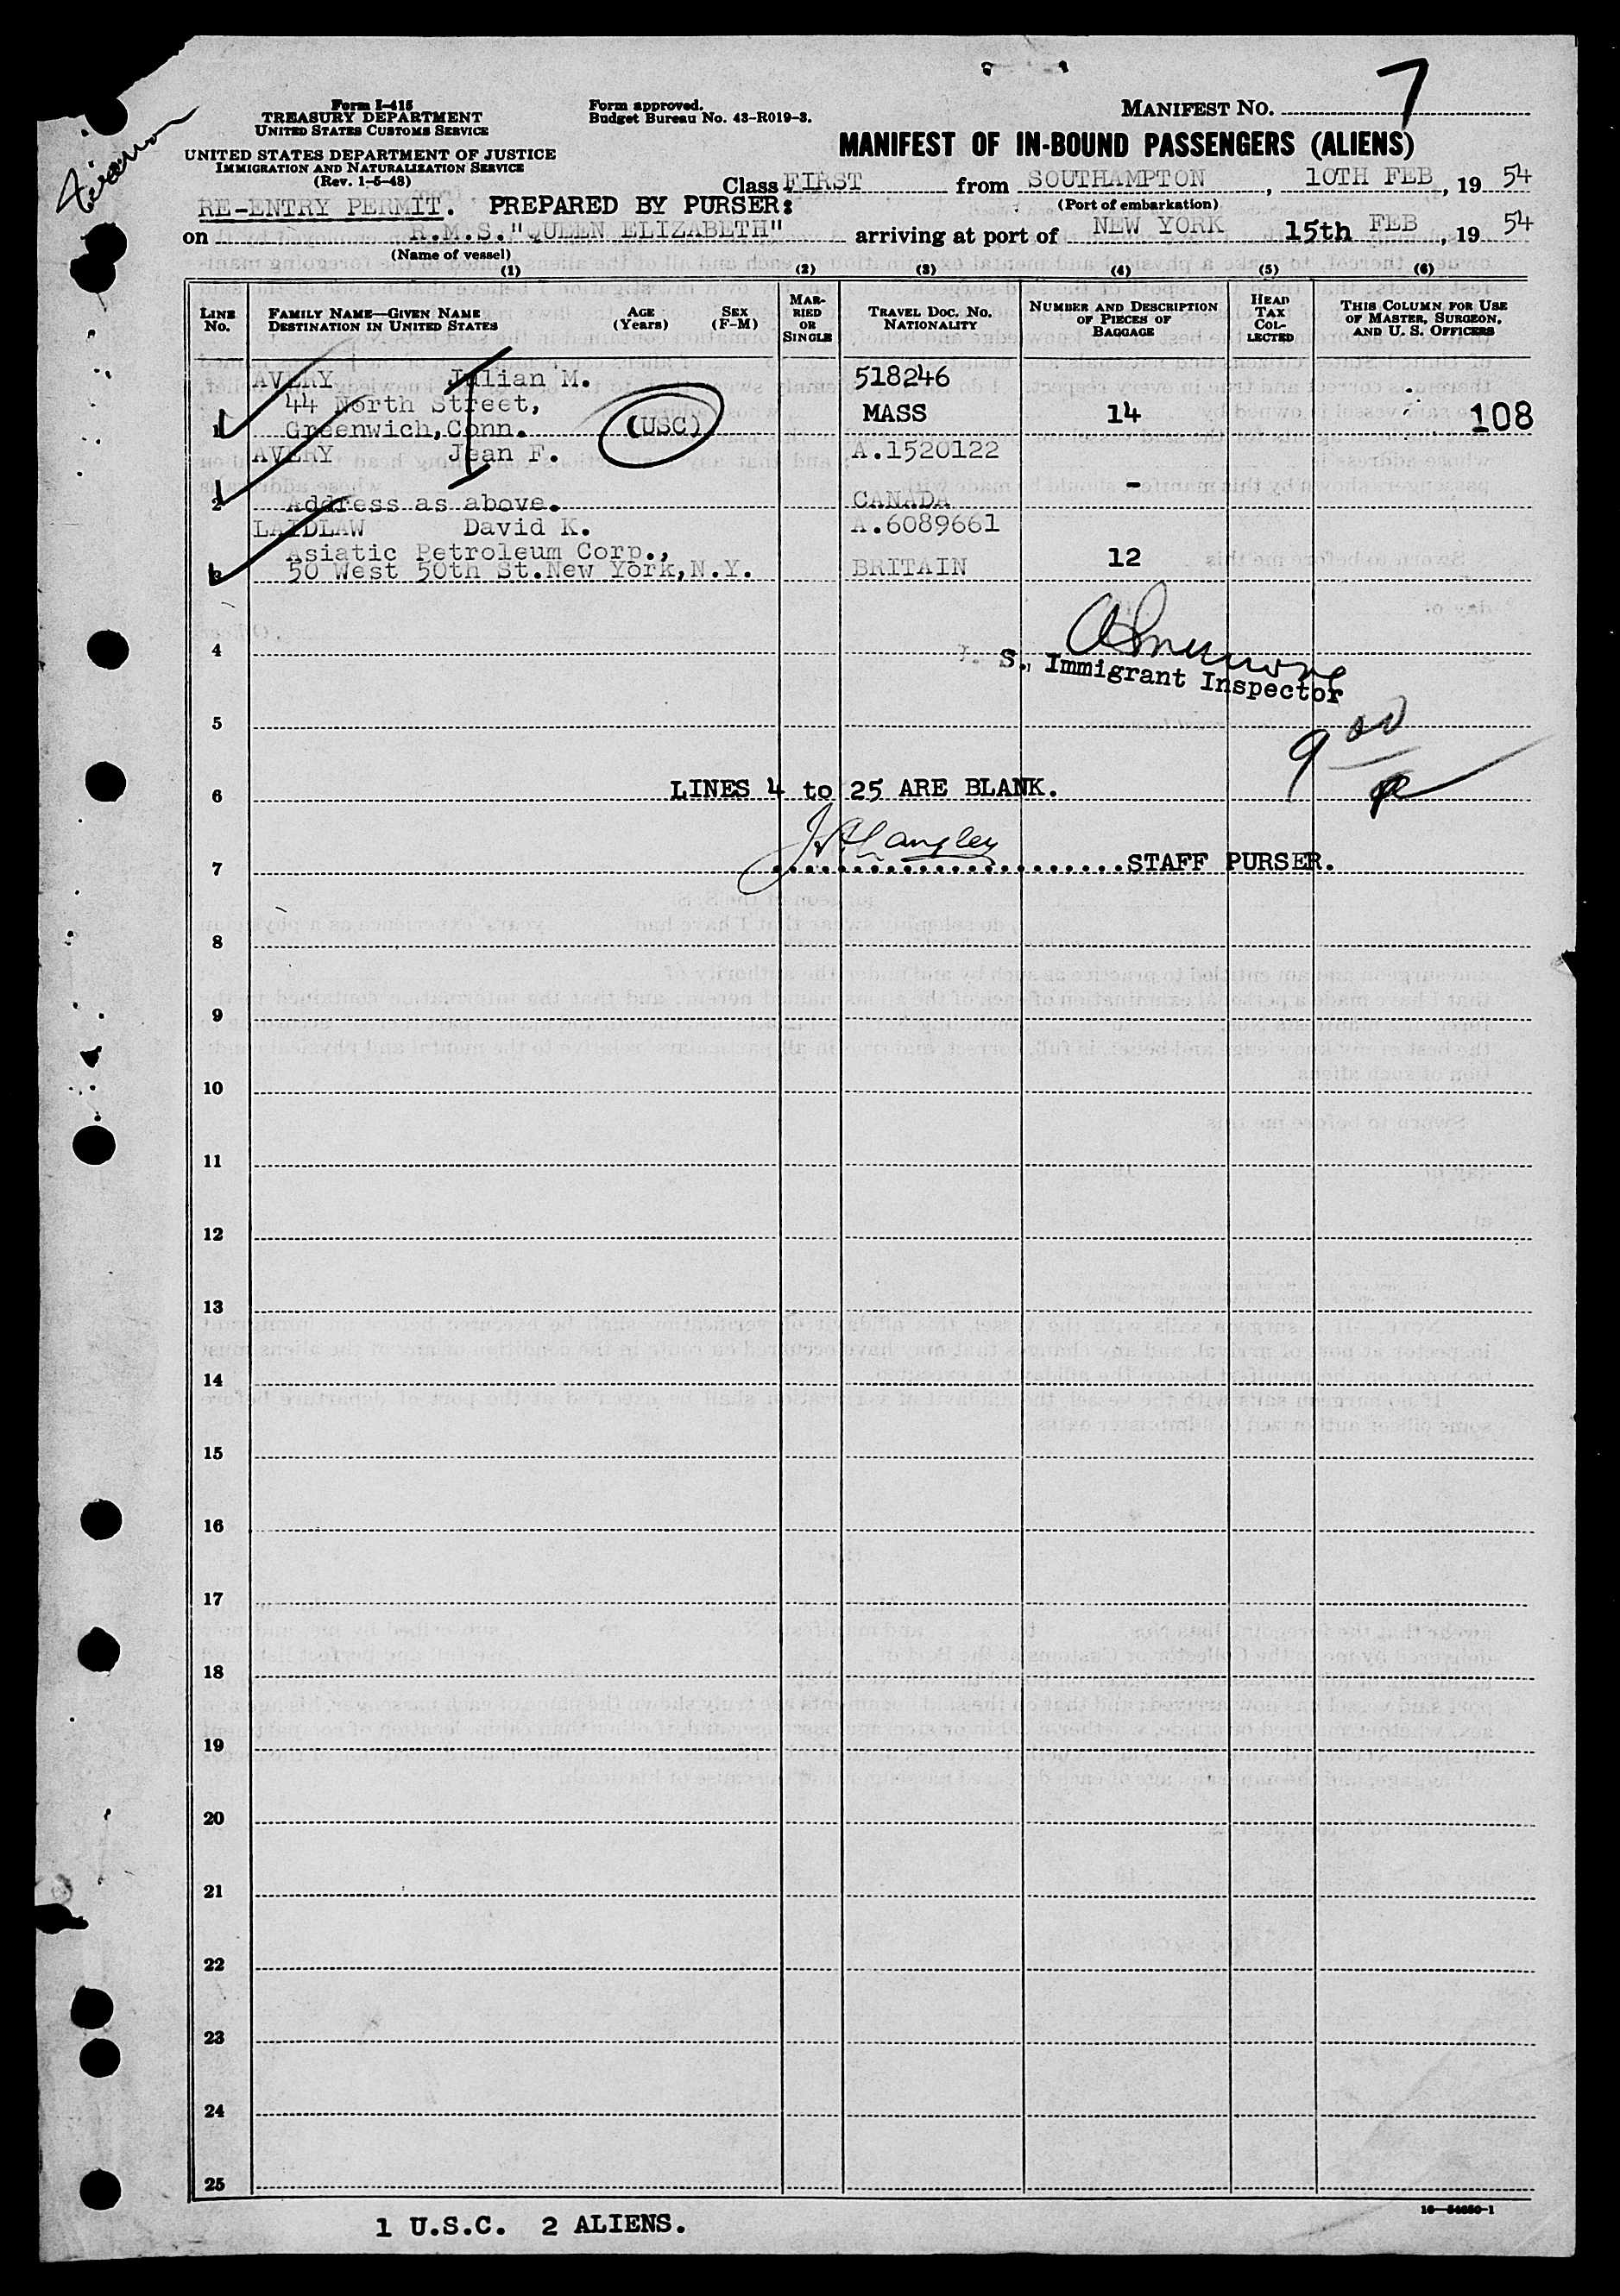 Form I-415
TREASURY DEPARTMENT
UNITED STATES CUSTOMS SERVICE
UNITED STATES DEPARTMENT OF JUSTICE
IMMIGRATION AND NATURALIZATION SERVICE
(Rev. 1-5-48)
Form approved.
Budget Bureau No. 43-R019-3.
MANIFEST No. 7
MANIFEST OF IN-BOUND PASSENGERS (ALIENS)
Class FIRST from SOUTHAMPTON, 10TH FEB, 19 54
(Port of embarkation)
RE-ENTRY PERMIT. PREPARED BY PURSER:
on R.M.S."QUEEN ELIZABETH" arriving at port of NEW YORK 15th FEB, 19 54
(Name of vessel)
(1) (2) (3) (4) (5) (6)
LINE No. FAMILY NAME—GIVEN NAME DESTINATION IN UNITED STATES AGE (Years) SEX (F-M) MARRIED OR SINGLE TRAVEL DOC. No. NATIONALITY NUMBER AND DESCRIPTION OF PIECES OF BAGGAGE HEAD TAX COLLECTED THIS COLUMN FOR USE OF MASTER, SURGEON, AND U. S. OFFICERS
AVERY Julian M. 518246
44 North Street, MASS 14 108
1 Greenwich,Conn. (USC)
AVERY Jean F. A.1520122
2 Address as above. CANADA -
LAIDLAW David K. A.6089661
Asiatic Petroleum Corp., 12
3 50 West 50th St.New York,N.Y. BRITAIN
4
S. Immigrant Inspector
5
9 00
6 LINES 4 to 25 ARE BLANK.
J Langley
7 STAFF PURSER.
8
9
10
11
12
13
14
15
16
17
18
19
20
21
22
23
24
25
1 U.S.C. 2 ALIENS.